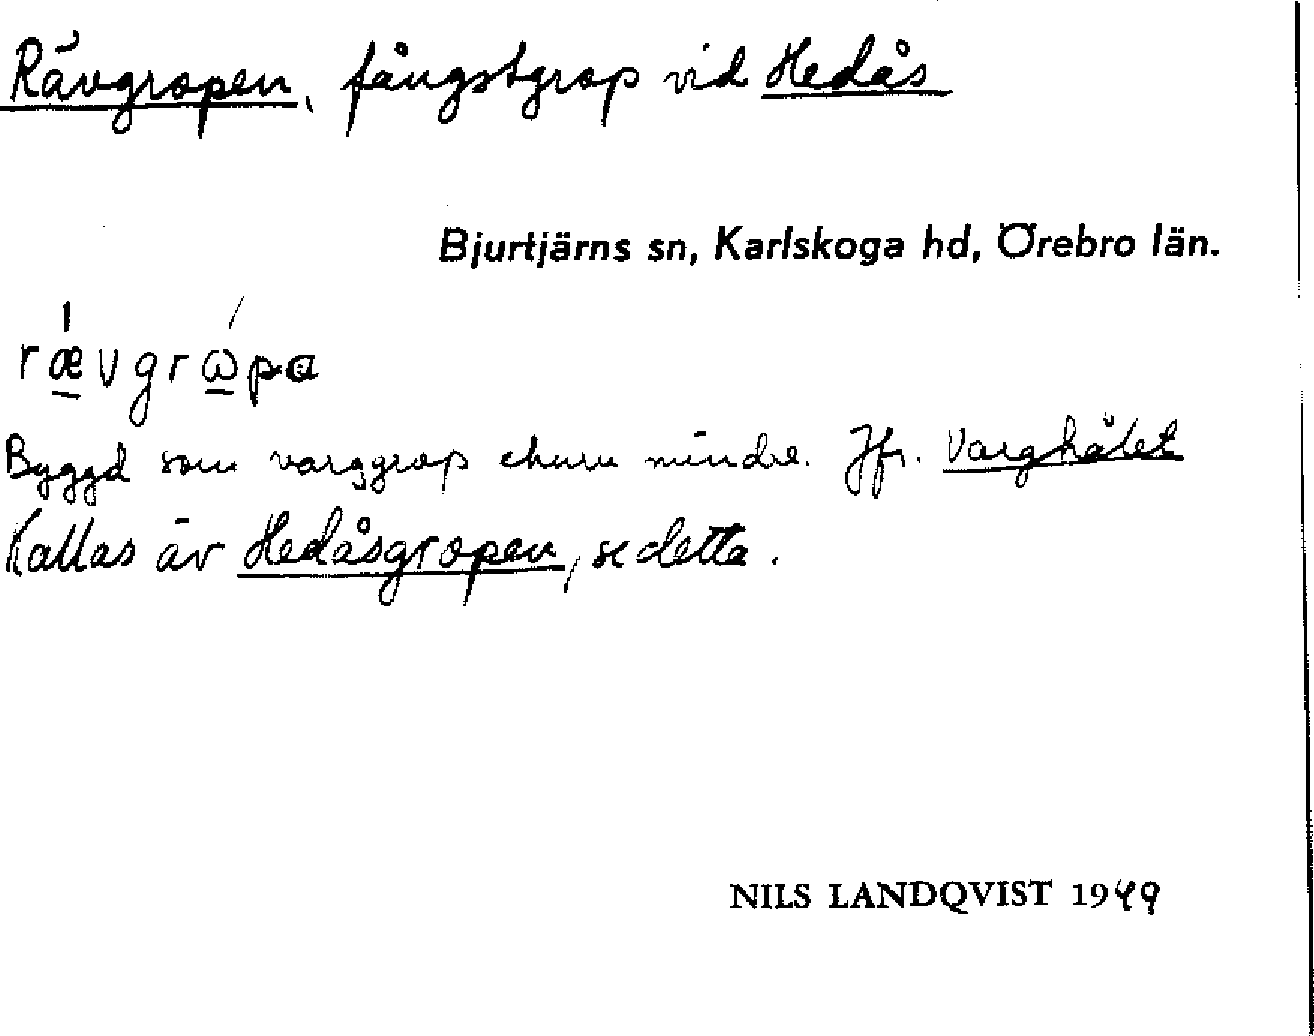 Rävgropen, fångstgrop vid Hedås
Bjurtjärns sn, Karlskoga hd, Örebro län.
rǽvgrώpa
Byggd som varggrop ehuru mindre. Jfr. Varghålet
Kallas äv Hedåsgropen, se detta.
NILS LANDQVIST 1949